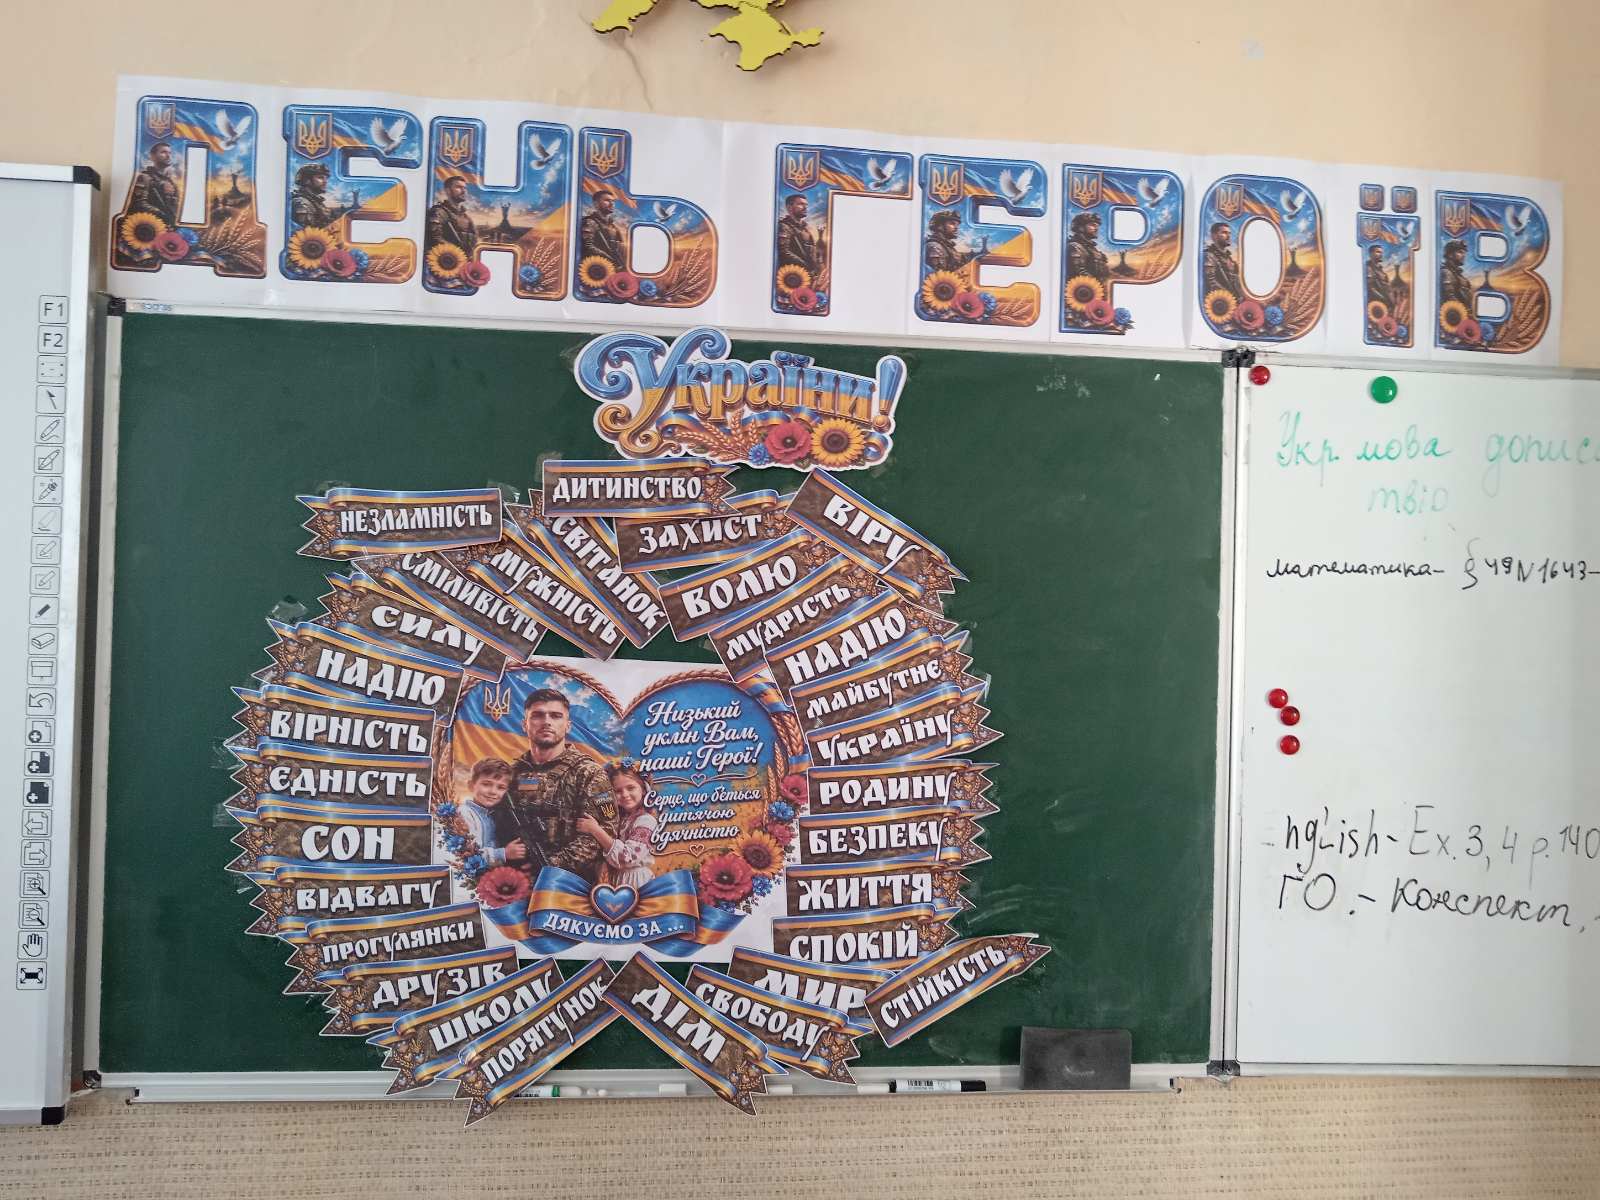 ДЕНЬ ГЕРОЇВ
України!
НЕЗЛАМНІСТЬ
ДИТИНСТВО
СВІТАНОК
ЗАХИСТ
ВІРУ
МУЖНІСТЬ
СМІЛИВІСТЬ
СИЛУ
НАДІЮ
ВІРНІСТЬ
ЄДНІСТЬ
СОН
ВІДВАГУ
ПРОГУЛЯНКИ
ДРУЗІВ
ШКОЛУ
ПОРЯТУНОК
ДІМ
СВОБОДУ
МИР
СТІЙКІСТЬ
СПОКІЙ
ЖИТТЯ
БЕЗПЕКУ
РОДИНУ
УКРАЇНУ
МАЙБУТНЄ
НАДІЮ
МУДРІСТЬ
ВОЛЮ
Низький
уклін Вам,
наші Герої!
Серце, що б'ється
дитячою
вдячністю
ДЯКУЄМО ЗА ...
F1
F2
Укр. мова
твір
математика- § 49 N 1643-
nglish- Ex. 3, 4 p. 140
ГО.- Конспект,